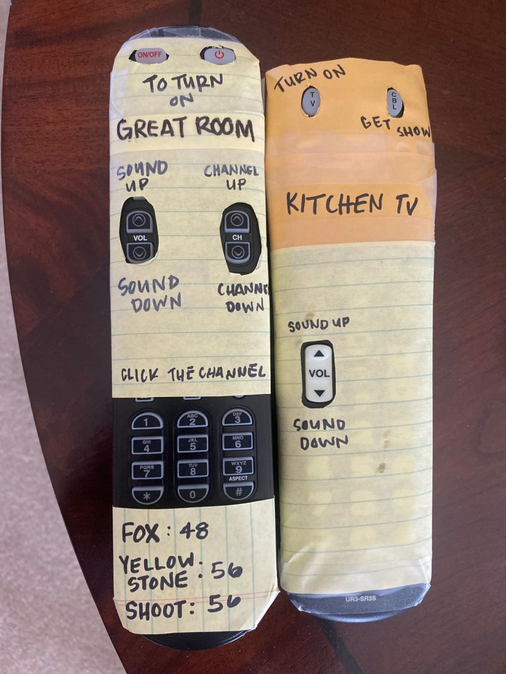 ON/OFF
TO TURN
ON
GREAT ROOM
SOUND
UP
CHANNEL
UP
VOL
CH
SOUND
DOWN
CHANNEL
DOWN
CLICK THE CHANNEL
1
ABC
2
DEF
3
GHI
4
JKL
5
MNO
6
PQRS
7
TUV
8
WXYZ
9
*
0
ASPECT
#
FOX: 48
YELLOW
STONE: 56
SHOOT: 56
TURN ON
TV
CBL
GET SHOW
KITCHEN TV
SOUND UP
VOL
SOUND
DOWN
UR3-SR3S